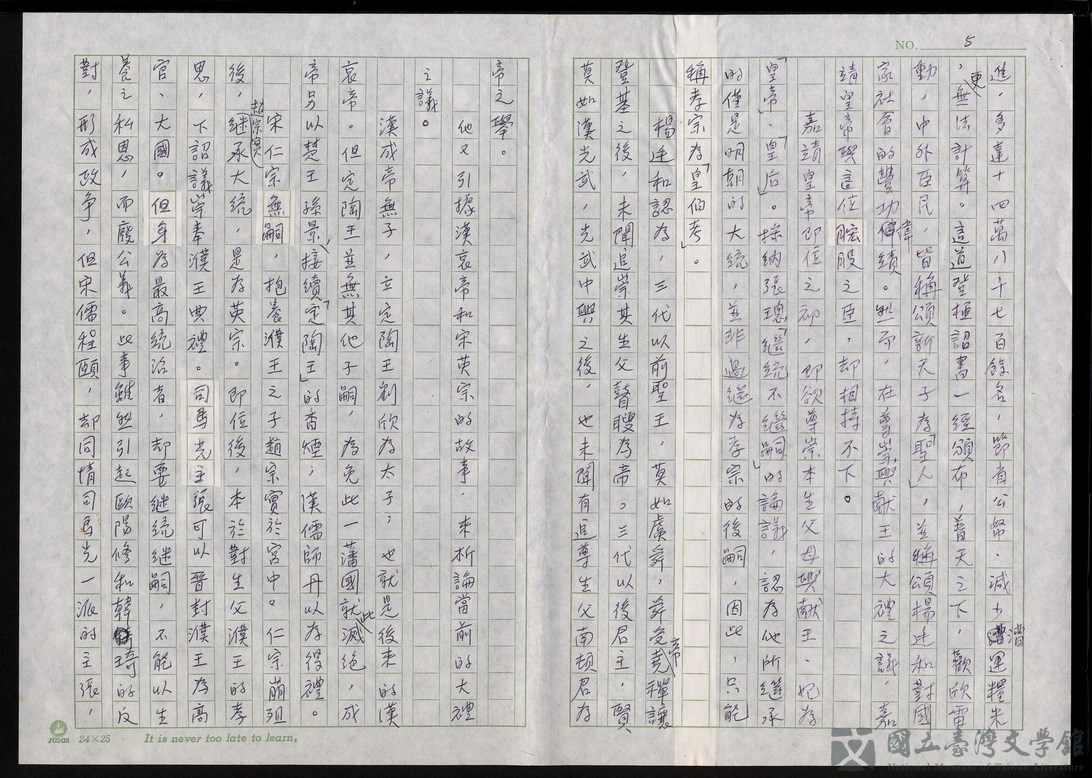 NO. 5
進，多達十四萬八千七百餘名，節省公帑、減少漕運糧米
，更無法計算。這道登極詔書一經頒布，普天之下，歡欣雷
動，中外臣民，皆稱頌新天子為「聖人」，並稱頌楊廷和對國
家社會的豐功偉績。然而，在尊崇興獻王的大禮之議，嘉
靖皇帝與這位肱股之臣，却相持不下。
嘉靖皇帝即位之初，即欲尊崇本生父母興献王、妃為
「皇帝」、「皇后」。採納張璁「繼統不繼嗣」的論議，認為他所繼承
的僅是明朝的大統，並非過繼為孝宗的後嗣，因此，只能
稱孝宗為「皇伯考」。
楊廷和認為，三代以前聖王，莫如虞舜，舜受堯帝禪讓
登基之後，未聞追崇其生父瞽瞍為帝。三代以後君主，賢
莫如漢光武，光武中興之後，也未聞有追尊生父南頓君為
帝之舉。
他又引據漢哀帝和宋英宗的故事，來析論當前的大禮
之議。
漢成帝無子，立定陶王劉欣為太子；也就是後來的漢
哀帝。但定陶王並無其他子嗣，為免此一藩國就此滅絕，成
帝另以楚王孫景，接續「定陶王」的香煙；漢儒師丹以為得禮。
宋仁宗無嗣，抱養濮王之子趙宗實於宮中。仁宗崩殂
後，趙宗實繼承大統，是為英宗。即位後，本於對生父濮王的孝
思，下詔議崇奉濮王典禮。司馬光主張可以晉封濮王為高
官、大國。但身為最高統治者，却要繼統繼嗣，不能以生
養之私恩，而廢公義。此事雖然引起歐陽修和韓琦的反
對，形成政争，但宋儒程頤，却同情司馬光一派的主張，
24×25 It is never too late to learn,
國立臺灣文學館
National Museum of Taiwan Literature